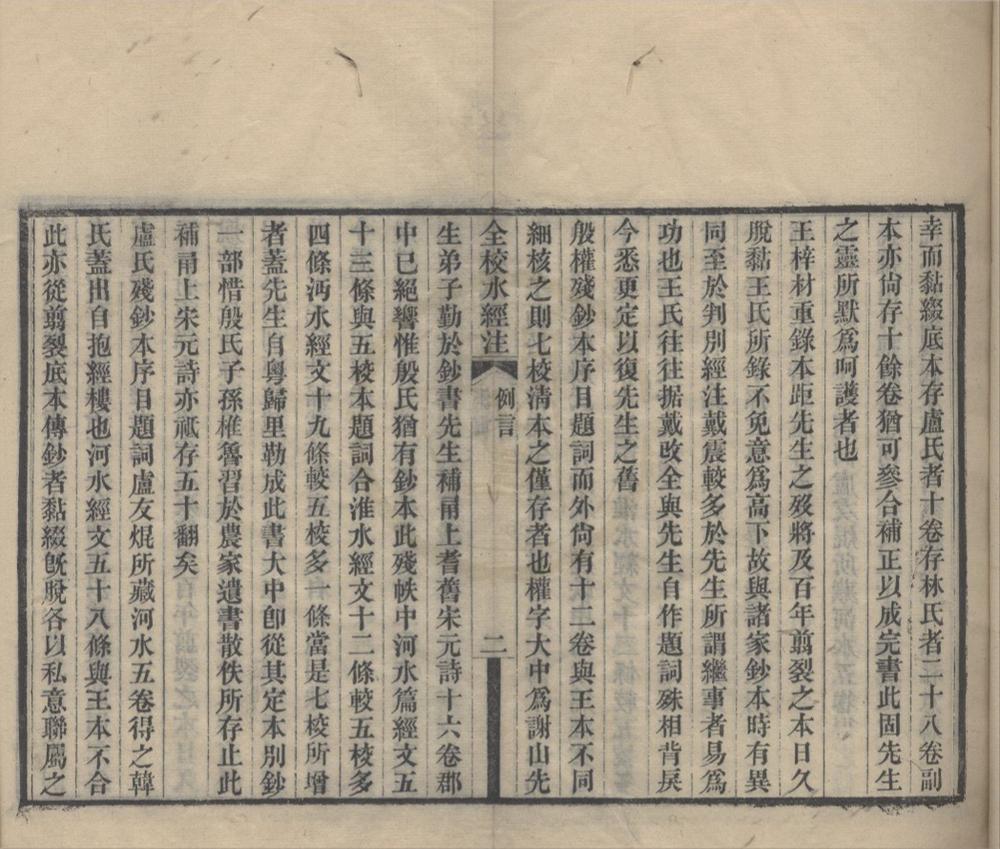 幸而黏綴底本存盧氏者十卷存林氏者二十八卷副
本亦尙存十餘卷猶可參合補正以成完書此固先生
之靈所默爲呵護者也
王梓材重錄本距先生之歿將及百年翦裂之本日久
脫黏王氏所錄不免意爲高下故與諸家鈔本時有異
同至於判別經注戴震較多於先生所謂繼事者易爲
功也王氏往往据戴改全與先生自作題詞殊相背戾
今悉更定以復先生之舊
殷權殘鈔本序目題詞而外尙有十二卷與王本不同
細核之則七校淸本之僅存者也權字大中爲謝山先
全校水經注
例言
二
生弟子勤於鈔書先生補甬上耆舊宋元詩十六卷郡
中已絕響惟殷氏猶有鈔本此殘帙中河水篇經文五
十三條與五校本題詞合淮水經文十二條較五校多
四條沔水經文十九條較五校多一條當是七校所增
者蓋先生自粵歸里勒成此書大中卽從其定本別鈔
一部惜殷氏子孫椎魯習於農家遺書散佚所存止此
補甬上宋元詩亦祗存五十翻矣
盧氏殘鈔本序目題詞盧友焜所藏河水五卷得之韓
氏蓋出自抱經樓也河水經文五十八條與王本不合
此亦從翦裂底本傳鈔者黏綴旣脫各以私意聯屬之